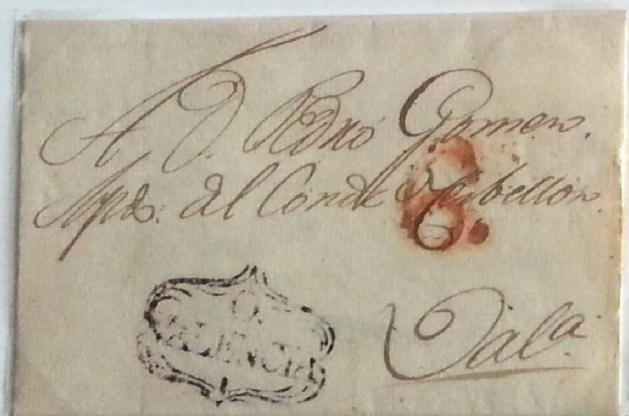 A D. Pedro Gomen.
Apdo. del Conde Cerbellon.
6.
VALENCIA
Val.a